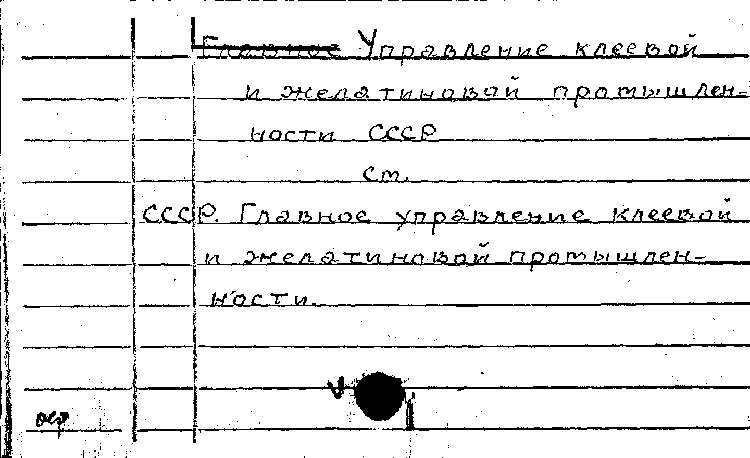 Главное Управление клеевой
и желатиновой промышлен-
ности СССР
см.
СССР. Главное управление клеевой
и желатиновой промышлен-
ности.